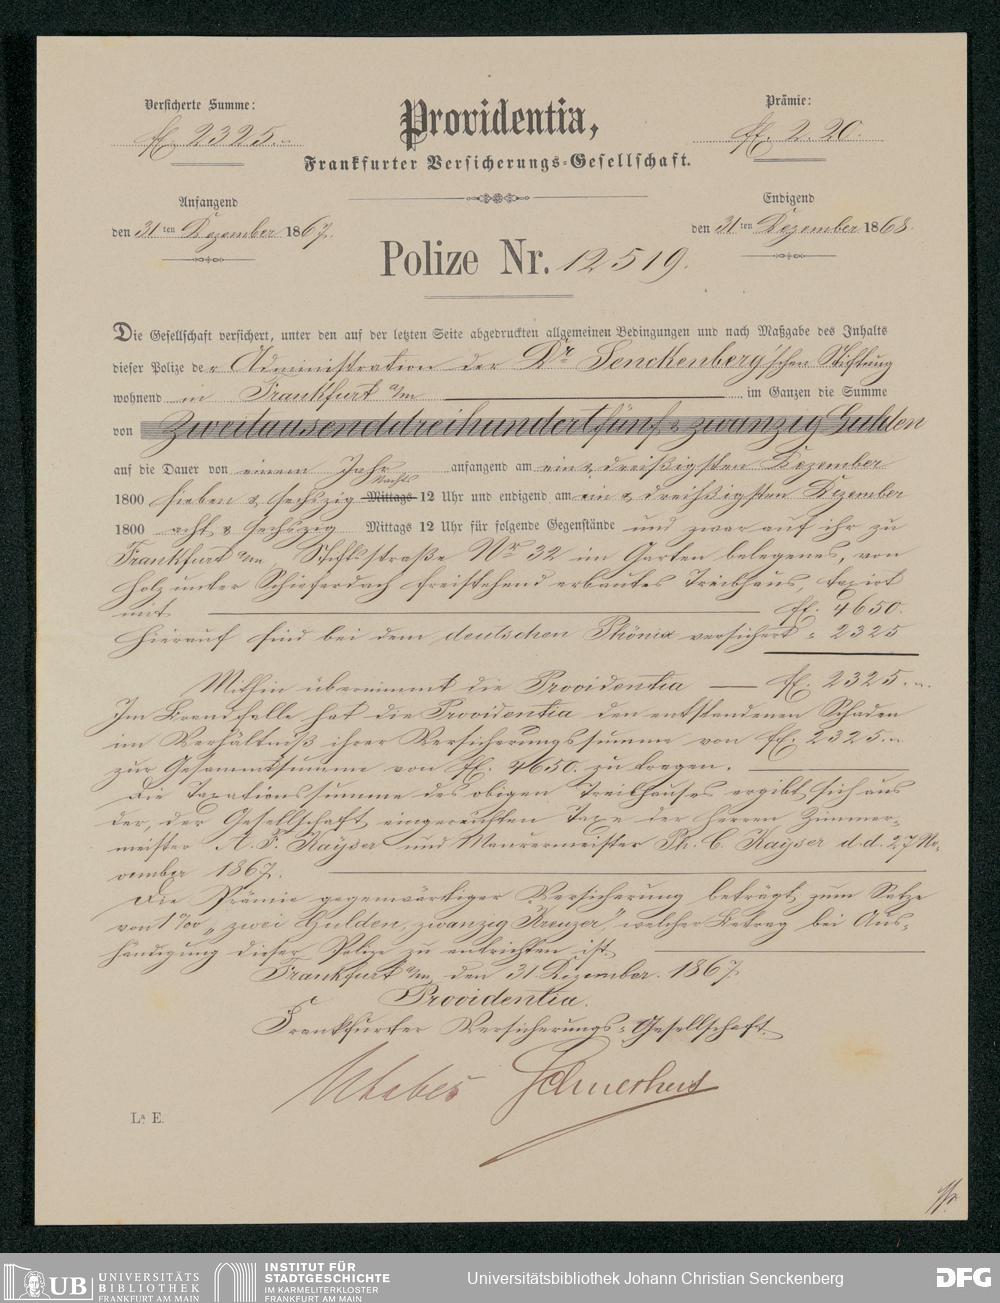 Versicherte Summe:
fl. 2325.-
Providentia,
Frankfurter Versicherungs-Gesellschaft.
Prämie:
fl. 2. 20.
Anfangend
den 31ten Dezember 1867.
Endigend
den 31ten Dezember 1868.
Polize Nr. 12519.
Die Gesellschaft versichert, unter den auf der letzten Seite abgedruckten allgemeinen Bedingungen und nach Maßgabe des Inhalts
dieser Polize der Administration der Dr. Senckenberg'schen Stiftung
wohnend in Frankfurt a/m im Ganzen die Summe
von Zweitausenddreihundertfünf & zwanzig Gulden
auf die Dauer von einem Jahr anfangend am ein & dreißigsten Dezember
Nachts
1800 sieben & sechszig Mittags 12 Uhr und endigend am ein & dreißigsten Dezember
1800 acht & sechszig Mittags 12 Uhr für folgende Gegenstände und zwar auf ihr zu
Frankfurt a/m, Stiftsstraße Nr. 32 im Garten belegenes, von
Holz unter Schieferdach freistehend erbautes Treibhaus, taxirt
mit fl. 4650.
Hierauf sind bei dem deutschen Phönix versichert " 2325
Mithin übernimmt die Providentia — fl. 2325.-
Im Brandfalle hat die Providentia den entstandenen Schaden
im Verhältniß ihrer Versicherungssumme von fl. 2325.-
zur Gesammtsumme von fl. 4650. zu tragen.
Die Taxationssumme des obigen Treibhauses ergibt sich aus
der, der Gesellschaft eingereichten Taxe der Herren Zimmer-
meister A. F. Kayser und Maurermeister Ph. C. Kayser d. d. 27 No-
vember 1867.
Die Prämie gegenwärtiger Versicherung beträgt zum Satze
von 1 ‰ „zwei Gulden, zwanzig Kreuzer", welcher Betrag bei Aus-
händigung dieser Polize zu entrichten ist.
Frankfurt a/m, den 31. Dezember 1867.
Providentia.
Frankfurter Versicherungs-Gesellschaft.
La. E.
UB UNIVERSITÄTS
BIBLIOTHEK
FRANKFURT AM MAIN
INSTITUT FÜR
STADTGESCHICHTE
IM KARMELITERKLOSTER
FRANKFURT AM MAIN
Universitätsbibliothek Johann Christian Senckenberg
DFG